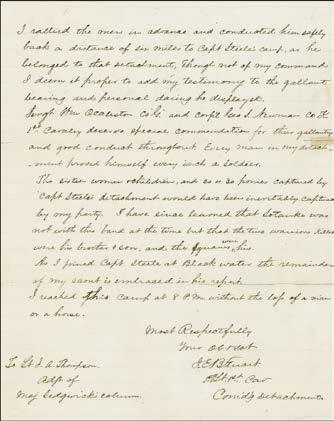 I rallied the men in advance and conducted him safely
back a distance of six miles to Capt Steele's camp, as he
belonged to that detachment, though not of my command
I deem it proper to add my testimony to the gallant
bearing and personal daring he displayed.
Sergt Wm Co G. and Corpl Geo S. Newman Co H
1st Cavalry deserve special commendation for their gallantry
and good conduct throughout. Every man in my detach-
ment proved himself every inch a soldier.
The sixteen women & children, and so 30 ponies captured by
Capt Steele's detachment would have been inevitably captured
by my party. I have since learned that Satanke was
not with this band at the time but that the two warriors killed
were his brother & son, and the squaws were his.
As I joined Capt Steele at Black water the remainder
of my scout is embraced in his report
I reached this camp at 8 P.M. without the loss of a man
or a horse.
Most Respectfully
Your Ob svt
J.E.B. Stuart
1st Lt. 1st Cav
Com'd'g Detachment.
To Lt J. A. Thompson
Adjt of
Maj Sedgwick's column.